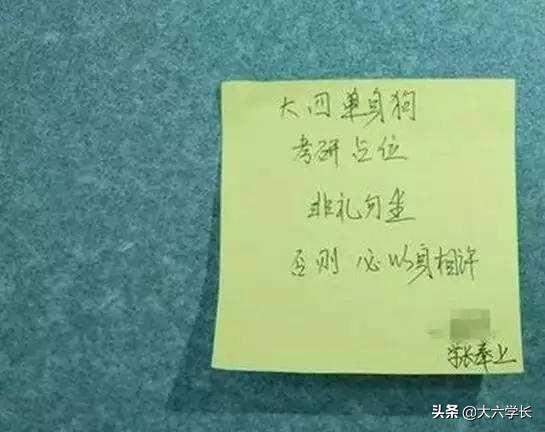 大四单身狗
考研占位
非礼勿坐
否则 必以身相许
学长奉上
头条 @大六学长